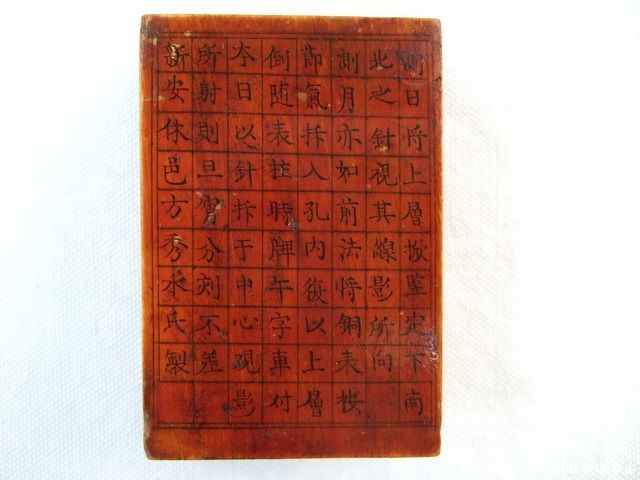 測日将上層掀竪定下南
北之針視其線影所向
測月亦如前法将銅表按
節氣拆入孔内復以上層
倒随表拄時牌午字車付
夲日以針拆于中心覌影
所射則旦宵分刻不差
新安休邑方秀水氏製